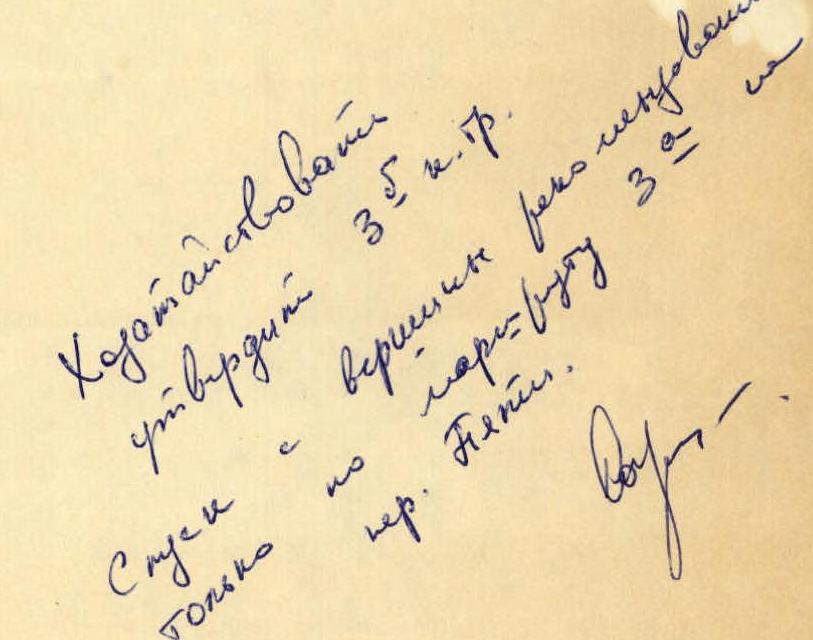 Ходатайствовать
утвердить 3б к.тр.
Спуск с вершины рекомендовать
только по маршруту 3а на
пер.